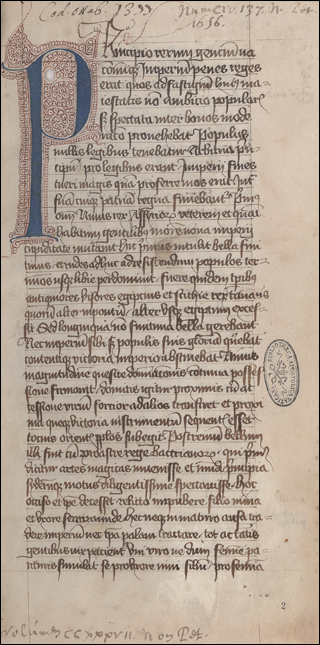 Cod. ottob. 1399
Numero 137. N. Lat.
1656.
Principio rerum gencium na
cionumque Imperium penes reges
erat quos ad fastigium huius ma
iestatis no ambitio popularis
sz spectata inter bonos mode
racio prouehebat Populus
nullis legibus tenebatur Arbitria prin
cipum pro legibus erant Imperii fines
tueri magis quam proferre mos erat Int
sua cuique patriam regna finiebantur
omnium Ninus rex Assiriorum veterem et quasi
habitum gentibus morem noua imperii
cupiditate mutauit hic primus intulit bella fini
timis et rudes adhuc ad resistendum populos ter
minos usque libie perdomuit fuere quidem tpribus
antiquiores egipcius et scithie rex tanaus
quorum alter in pontum alter usque egyptum exces
sit Sed longinqua no finitima bella gerebant
Nec imperium sibi sz populis suis gloriam querebant
contentique victoria imperio abstinebant Ninus
magnitudine quesite dominationis continua posses
sione firmauit domitis igitur proximis cum ac
cessione virium fortior ad alios transiret et proxi
ma queque victoria instrumentum sequentis esset
tocius orientis pplos subegit Postremum bellum
illi fuit cum zoroastre rege bactrianorum qui primus
dicitur artes magicas inuenisse et mundi principia
syderumque motus diligentissime spectauisse hoc
occiso et ipe decessit relicto impubere filio ninia
et uxore semiramide hec neque inmaturo ausa tra
dere imperium nec ipa palam tractare tot ac talis
gentibus vix pacienter vni viro ne dum femine pa
rituris simulat se pro uxore nini filium pro femina
2
Volum CCXXXVII. Non Pet.